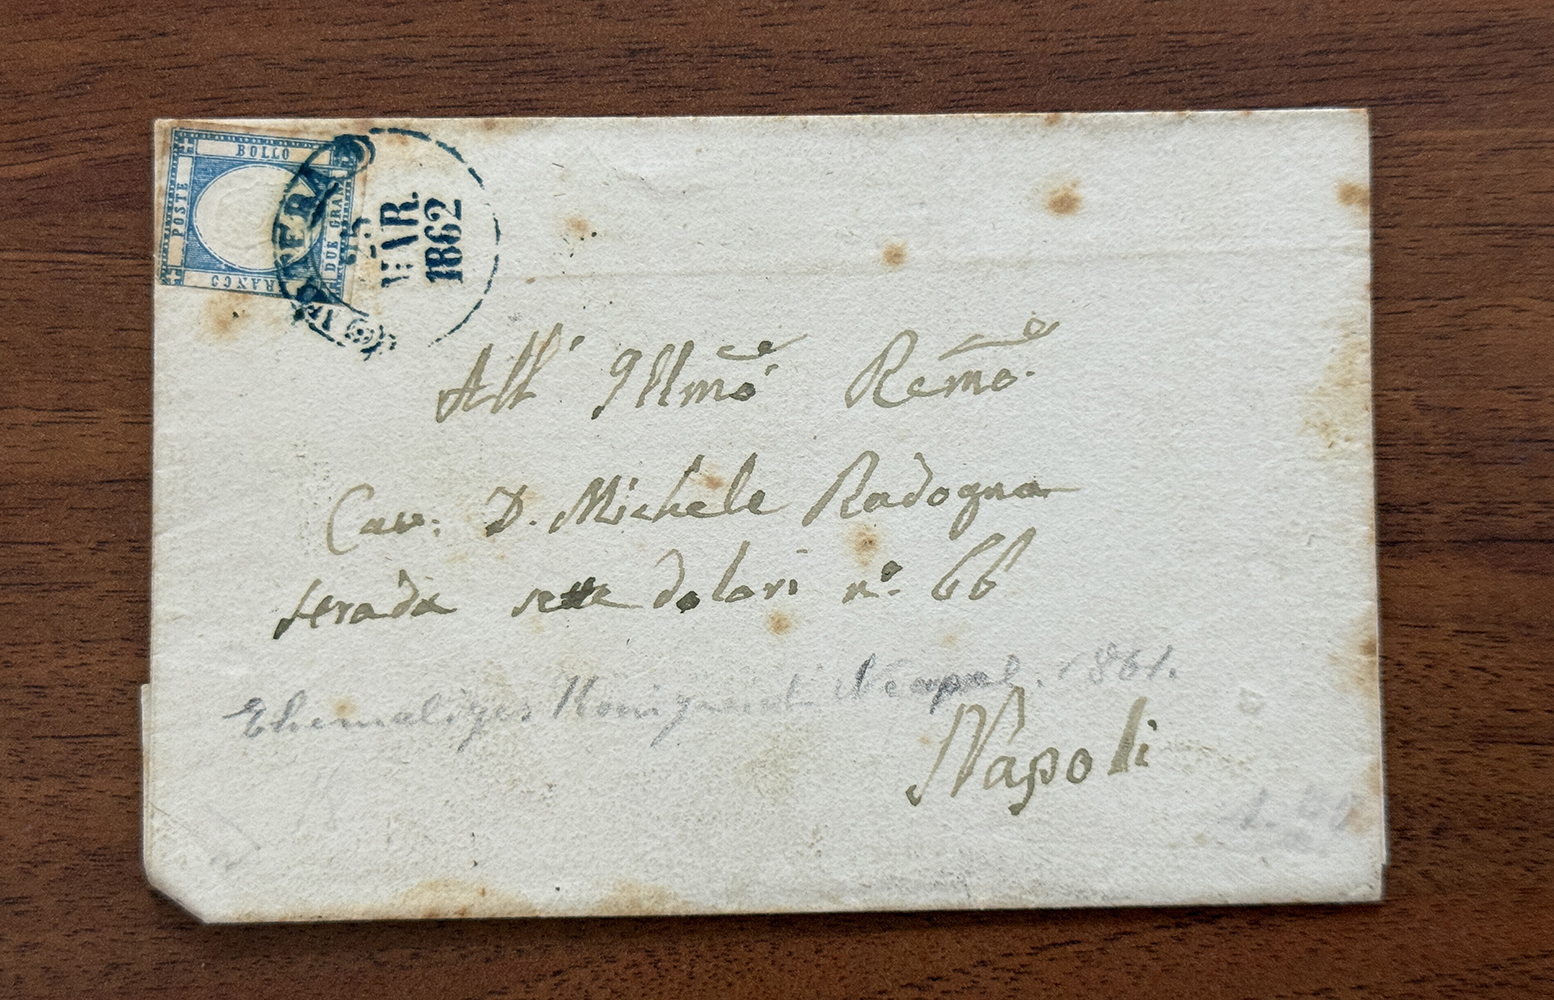 BOLLO
POSTE
DUE GRANA
FRANCO
MATERA
MAR.
1862
All' Illmo Remo.
Cav: D. Michele Radogna
serada sette dolori n.° 66
Ehemaliges Königreich Neapel. 1861.
Napoli